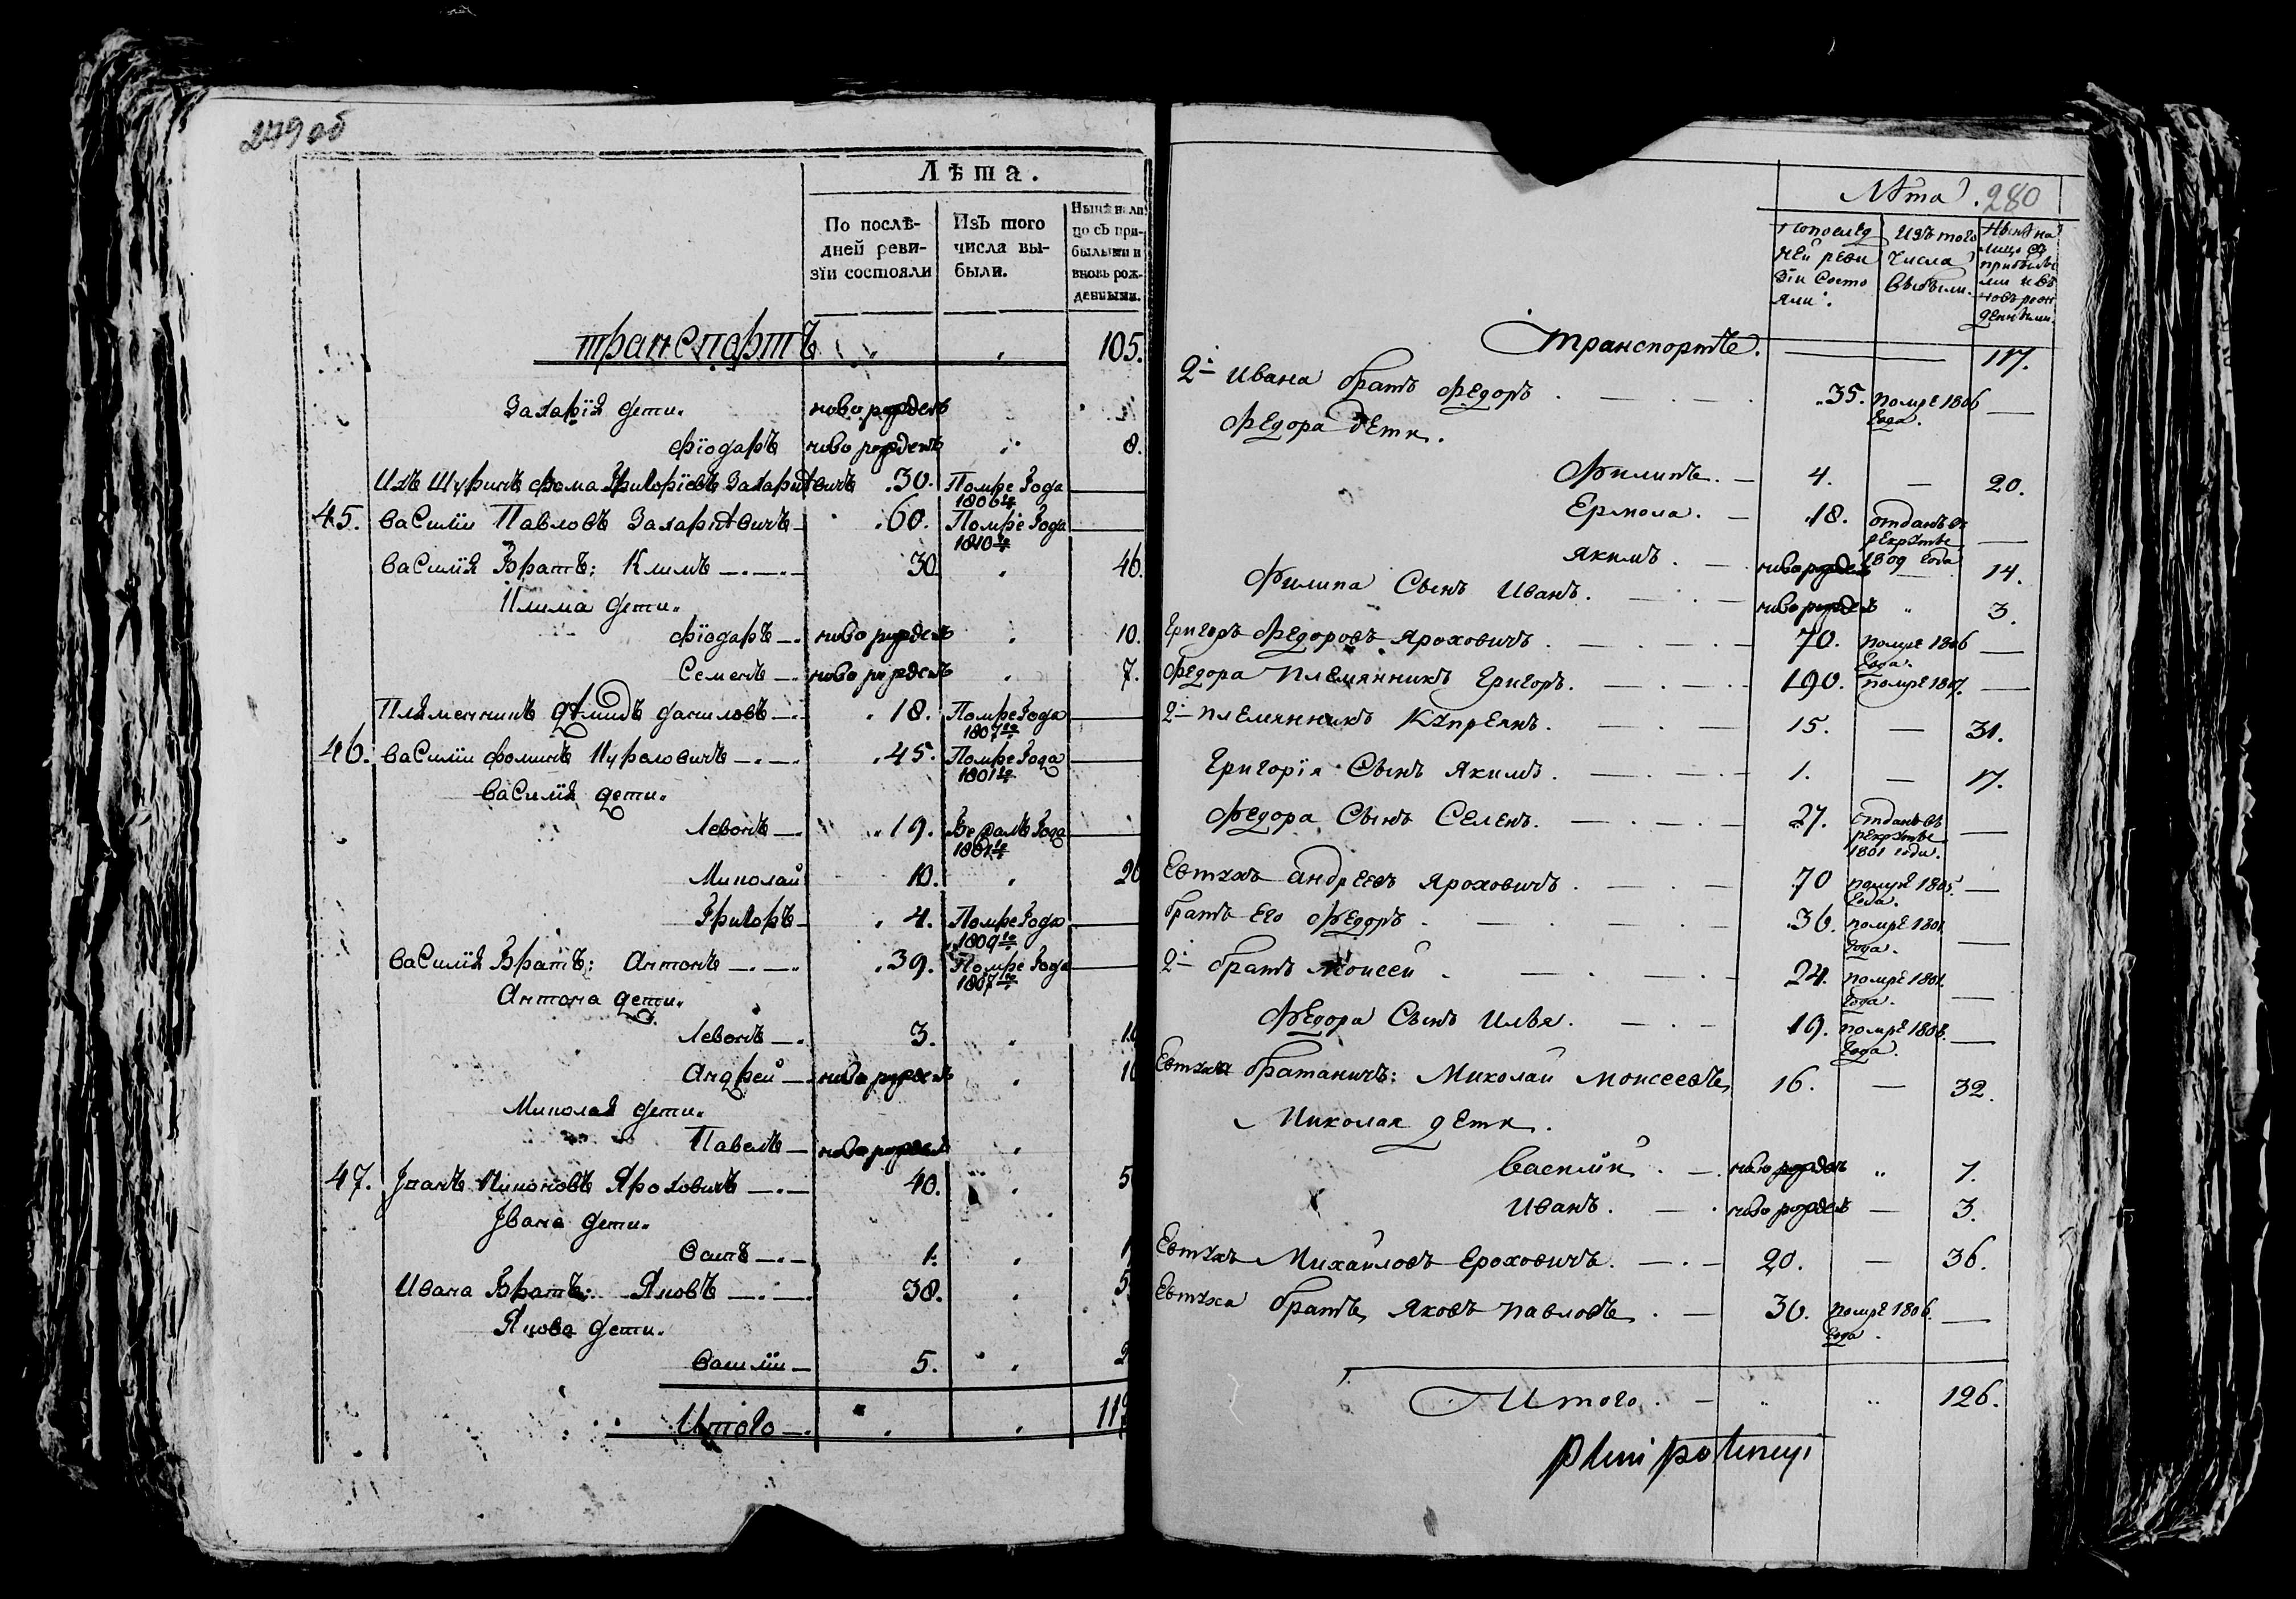 279 об
Лѣта.
По послѣ-
дней реви-
зїи состояли
Изъ того
числа вы-
были.
Нынѣ на ли
цо съ при-
былыми и
вновь рож-
денными.
транспортъ " " 105.
Захарїя дети.
новорожденъ
Фїодаръ новорожденъ " 8.
Ихъ Шуринъ Фома Григорїевъ Захаритвичъ 30. Помре Года
1806го
45. Василïи Павловъ Захаритвичъ 60. Помре Года
1810го
Василїя Братъ: Климъ 30 " 46.
Клима дети.
Фїодаръ новорожденъ " 10.
Семенъ новорожденъ " 7.
Пляменникъ Даниловъ 18. Помре Года
1807го
46. Василïи Фоминъ 45. Помре Года
1801го
Василїя дети.
Левонъ 19. Года
Миколай 10. " 20
Григоръ 4. Помре Года
1809го
Василїя Братъ: Антонъ 39. Помре Года
1807го
Антона дети.
Левонъ 3. "
Андрей новорожденъ "
Миколая дети.
Павелъ новорожденъ "
47. Яроховичъ 40. " 5
Iвана дети.
1. "
Ивана Братъ: Яковъ 38. " 5
Якова дети.
Василïи 5. " 2
Итого " " 117
Лѣта. 280
Попослед
ней реви
зїи состо
яли.
Изъ того
числа
выбыли.
Ныне на
лицо съ
прибылы
ми и въ
новь рож
денными.
Транспортъ. 117.
2й Ивана братъ Федоръ 35. помре 1806
года.
Федора дети.
Филипъ. 4. 20.
Ермола. 18. отданъ въ
рекруты
1809 года
Якимъ. новорожденъ 14.
Филипа Сынъ Иванъ. новорожденъ " 3.
Григоръ Федоровъ Яроховичъ. 70. помре 1806
года.
Федора племянникъ Григоръ. помре 1807.
2й племянникъ Купреянъ. 15. 31.
Григорїя Сынъ Якимъ. 1. 17.
Федора Сынъ Семенъ. 27. отданъ въ
рекруты
1801 года.
Евтухъ Андреевъ Яроховичъ. 70 помре
года.
братъ его Федоръ 36. помре 1801
года.
2й братъ Моисей. 24. помре 1801.
года.
Федора Сынъ Илья. 19. помре 1806.
года.
Евтуха братаничъ: Миколай Моисеевъ, 16. 32.
Николая дети.
Василий. новорожденъ " 7.
Иванъ. новорожденъ 3.
Евтухъ Михайловъ Ероховичъ. 20. 36.
Евтуха братъ, Яковъ Павловъ. 30. помре 1806.
года.
Итого. " " 126.